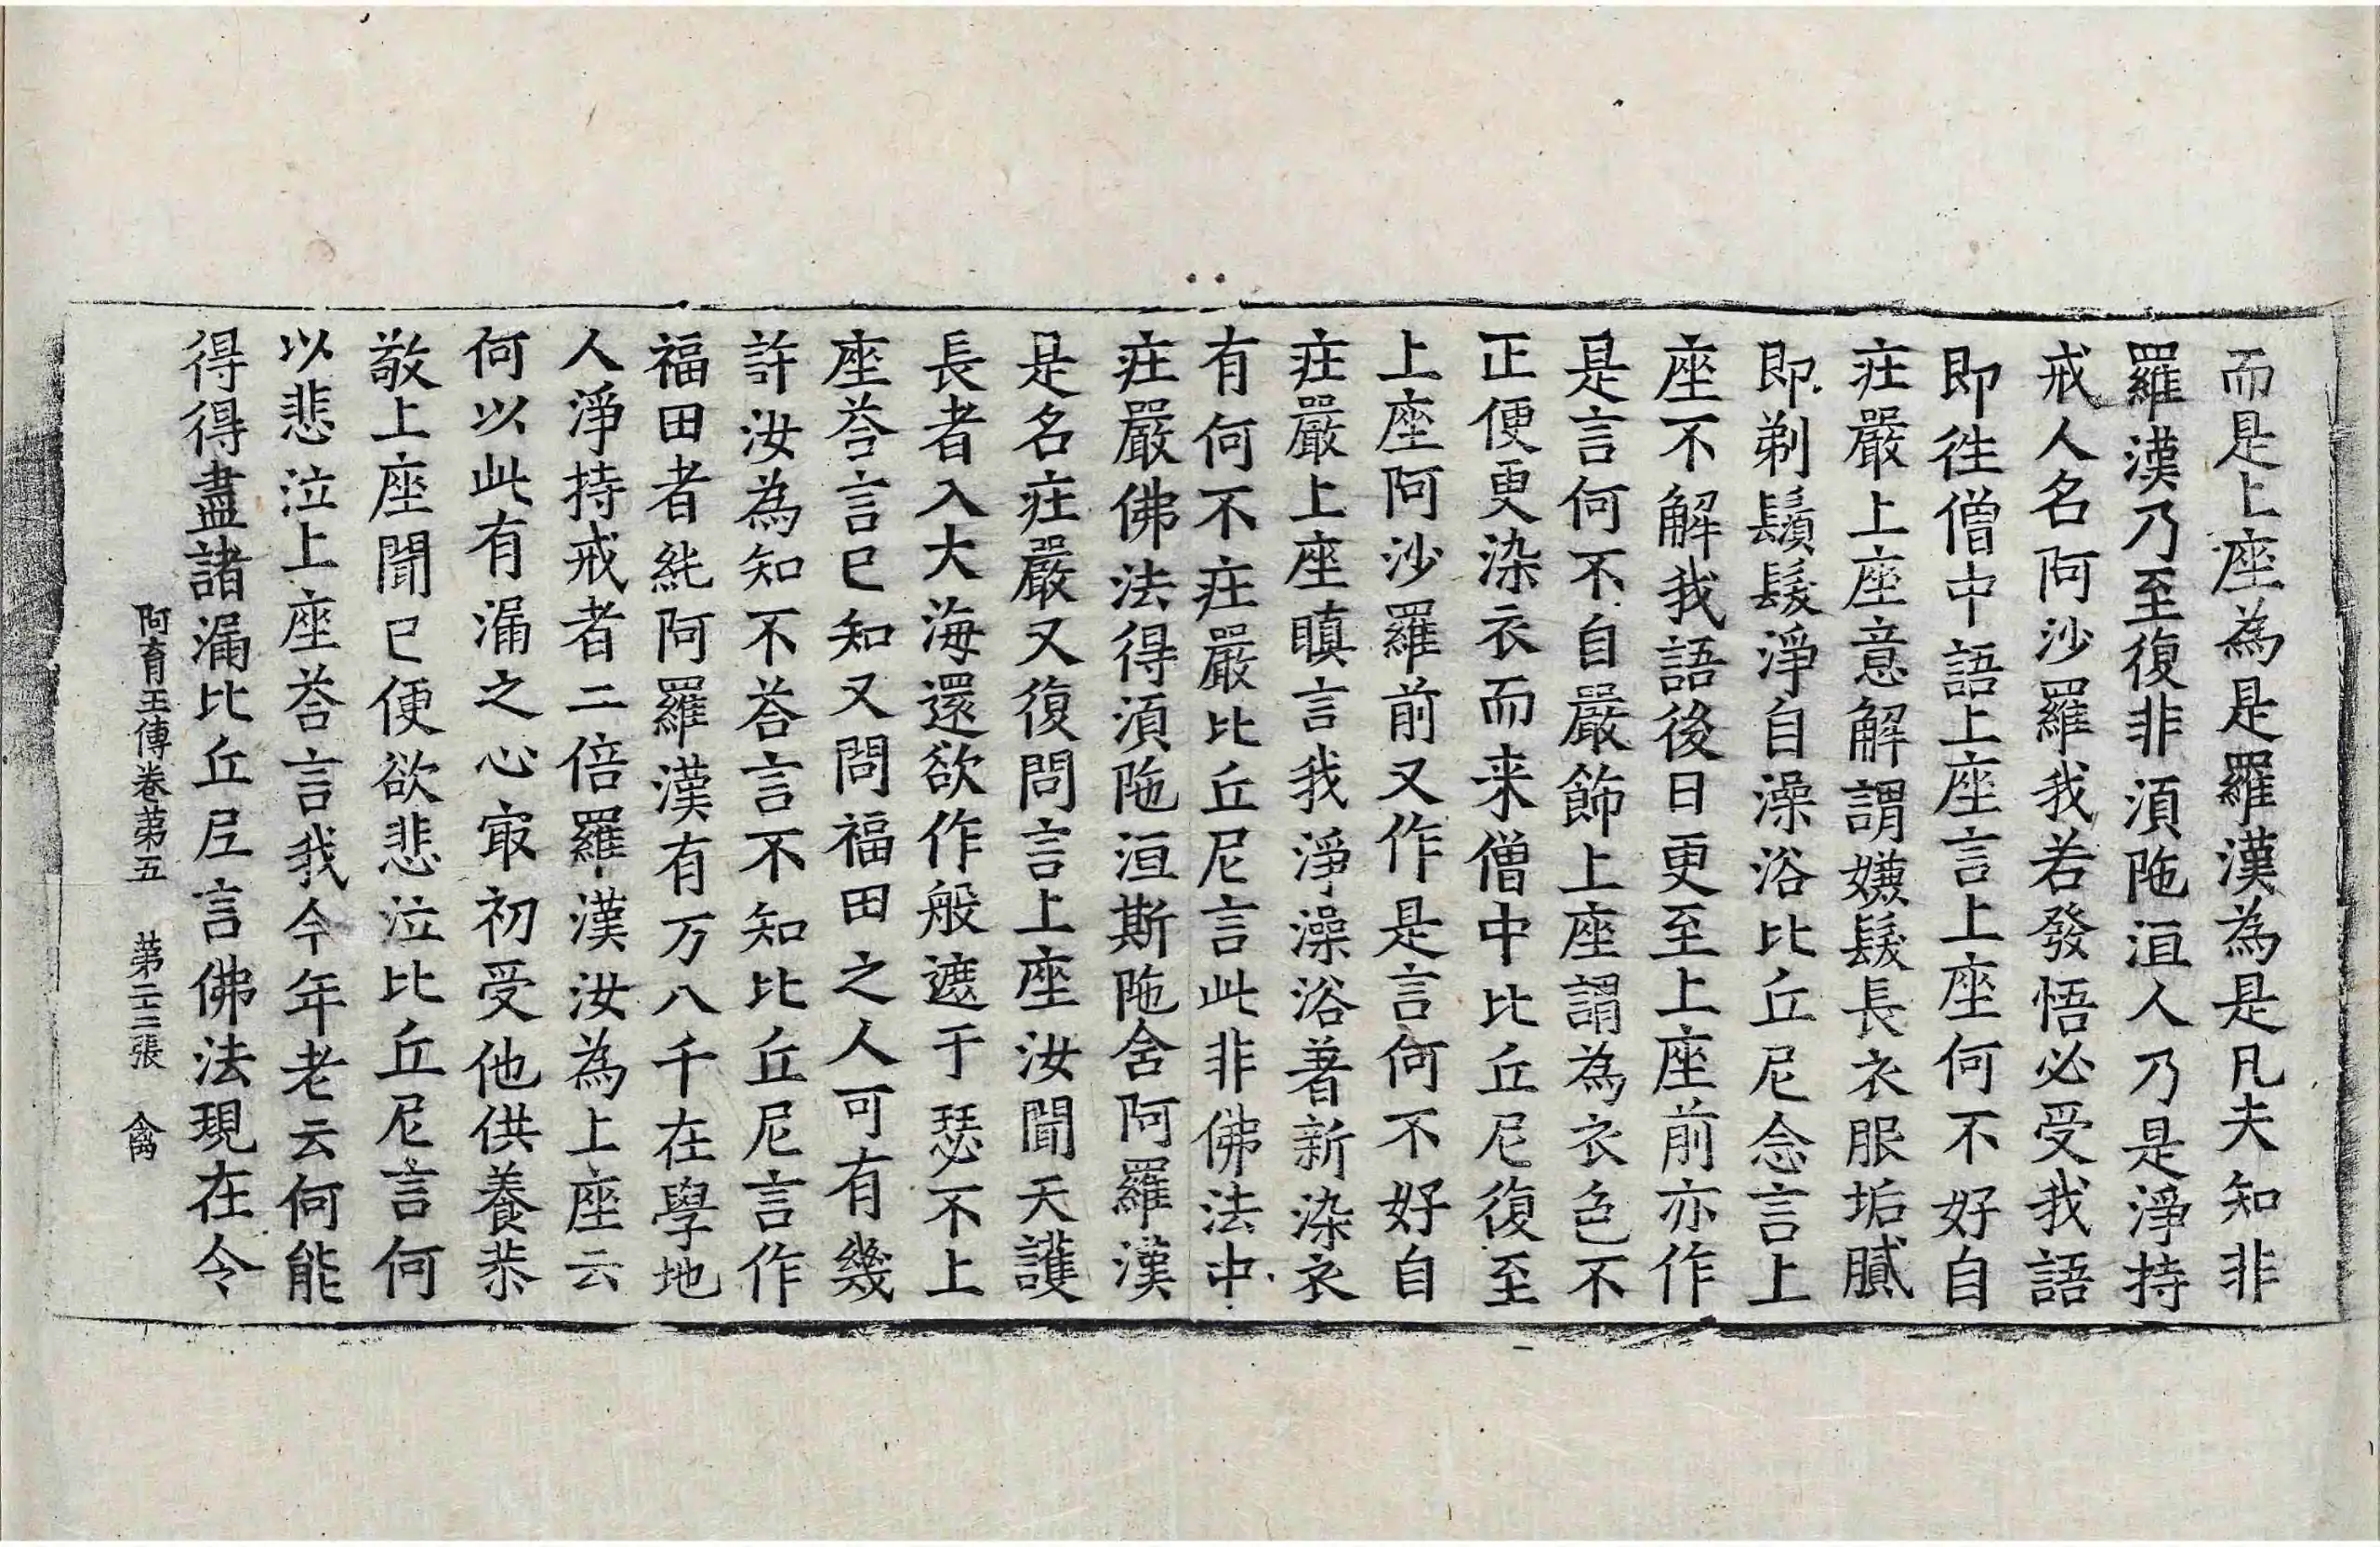 而是上座為是羅漢為是凡夫知非
羅漢乃至復非湏陁洹人乃是淨持
戒人名阿沙羅我若發悟必受我語
即徃僧中語上座言上座何不好自
莊嚴上座意解謂嫌髮長衣服垢膩
即剃鬚髮淨自澡浴比丘尼念言上
座不解我語後日更至上座前亦作
是言何不自嚴飾上座謂為衣色不
正便更染衣而来僧中比丘尼復至
上座阿沙羅前又作是言何不好自
莊嚴上座瞋言我淨澡浴著新染衣
有何不莊嚴比丘尼言此非佛法中
莊嚴佛法得湏陁洹斯陁含阿羅漢
是名莊嚴又復問言上座汝聞天護
長者入大海還欲作般遮于瑟不上
座荅言已知又問福田之人可有幾
許汝為知不荅言不知比丘尼言作
福田者純阿羅漢有万八千在學地
人淨持戒者二倍羅漢汝為上座云
何以此有漏之心冣初受他供養恭
敬上座聞已便欲悲泣比丘尼言何
以悲泣上座荅言我今年老云何能
得得盡諸漏比丘尼言佛法現在令
阿育王傳卷第五 第二十二張 禽